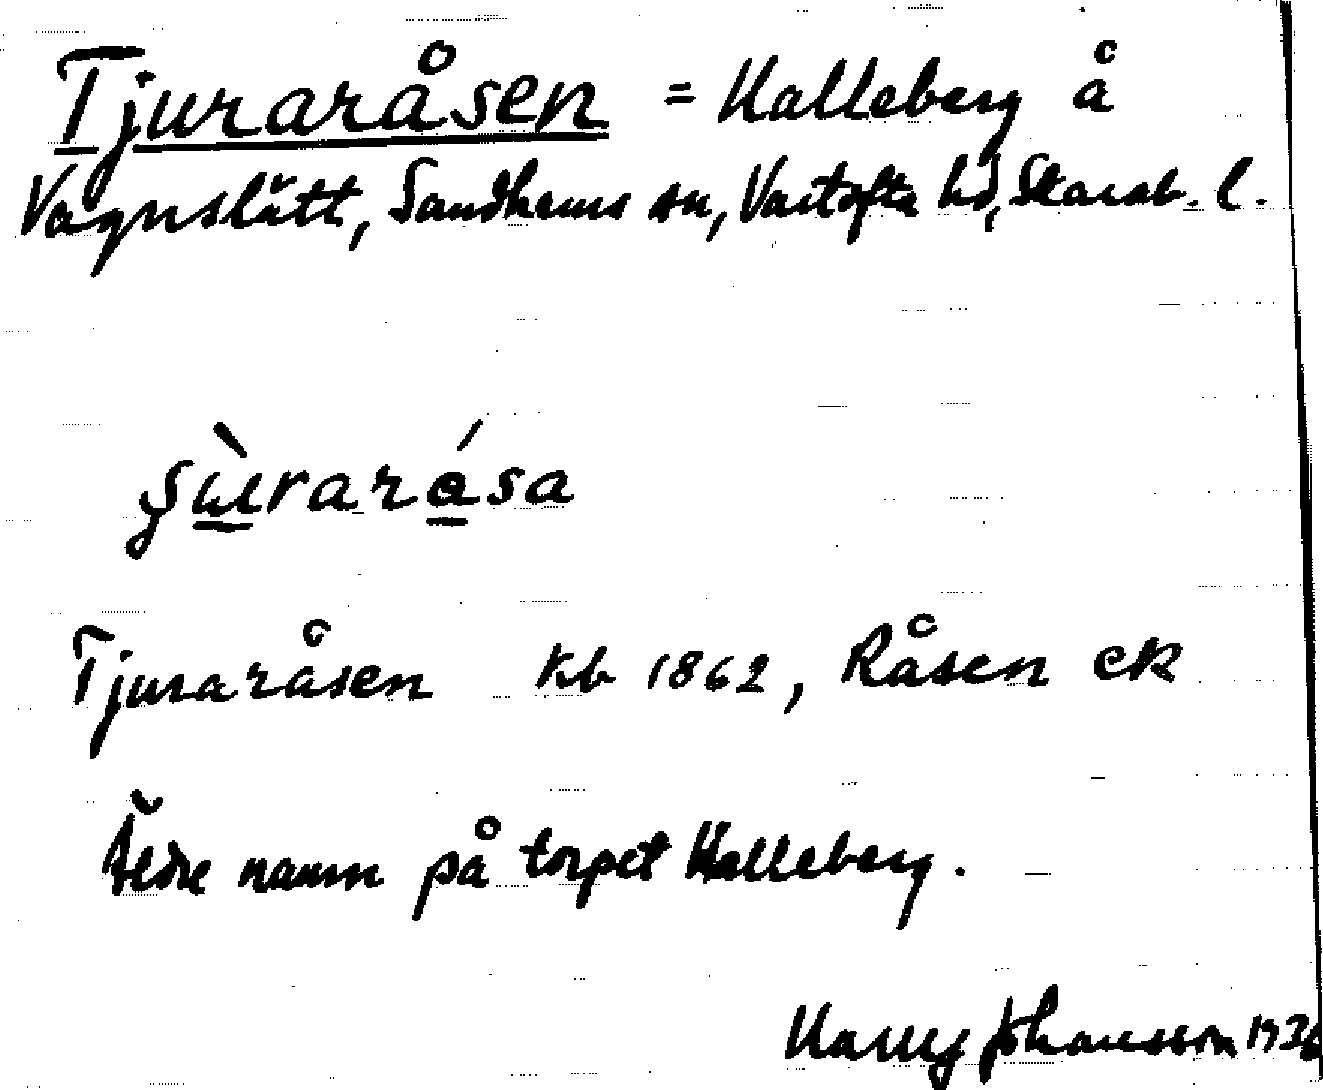 Tjuraråsen = Halleberg å
Vagnslätt, Sandhems sn, Vartofta hd, Skarab. l.
Tjuraråsen Kb 1862, Råsen ek
Äldre namn på torpet Halleberg.
Harry Johansson 1936